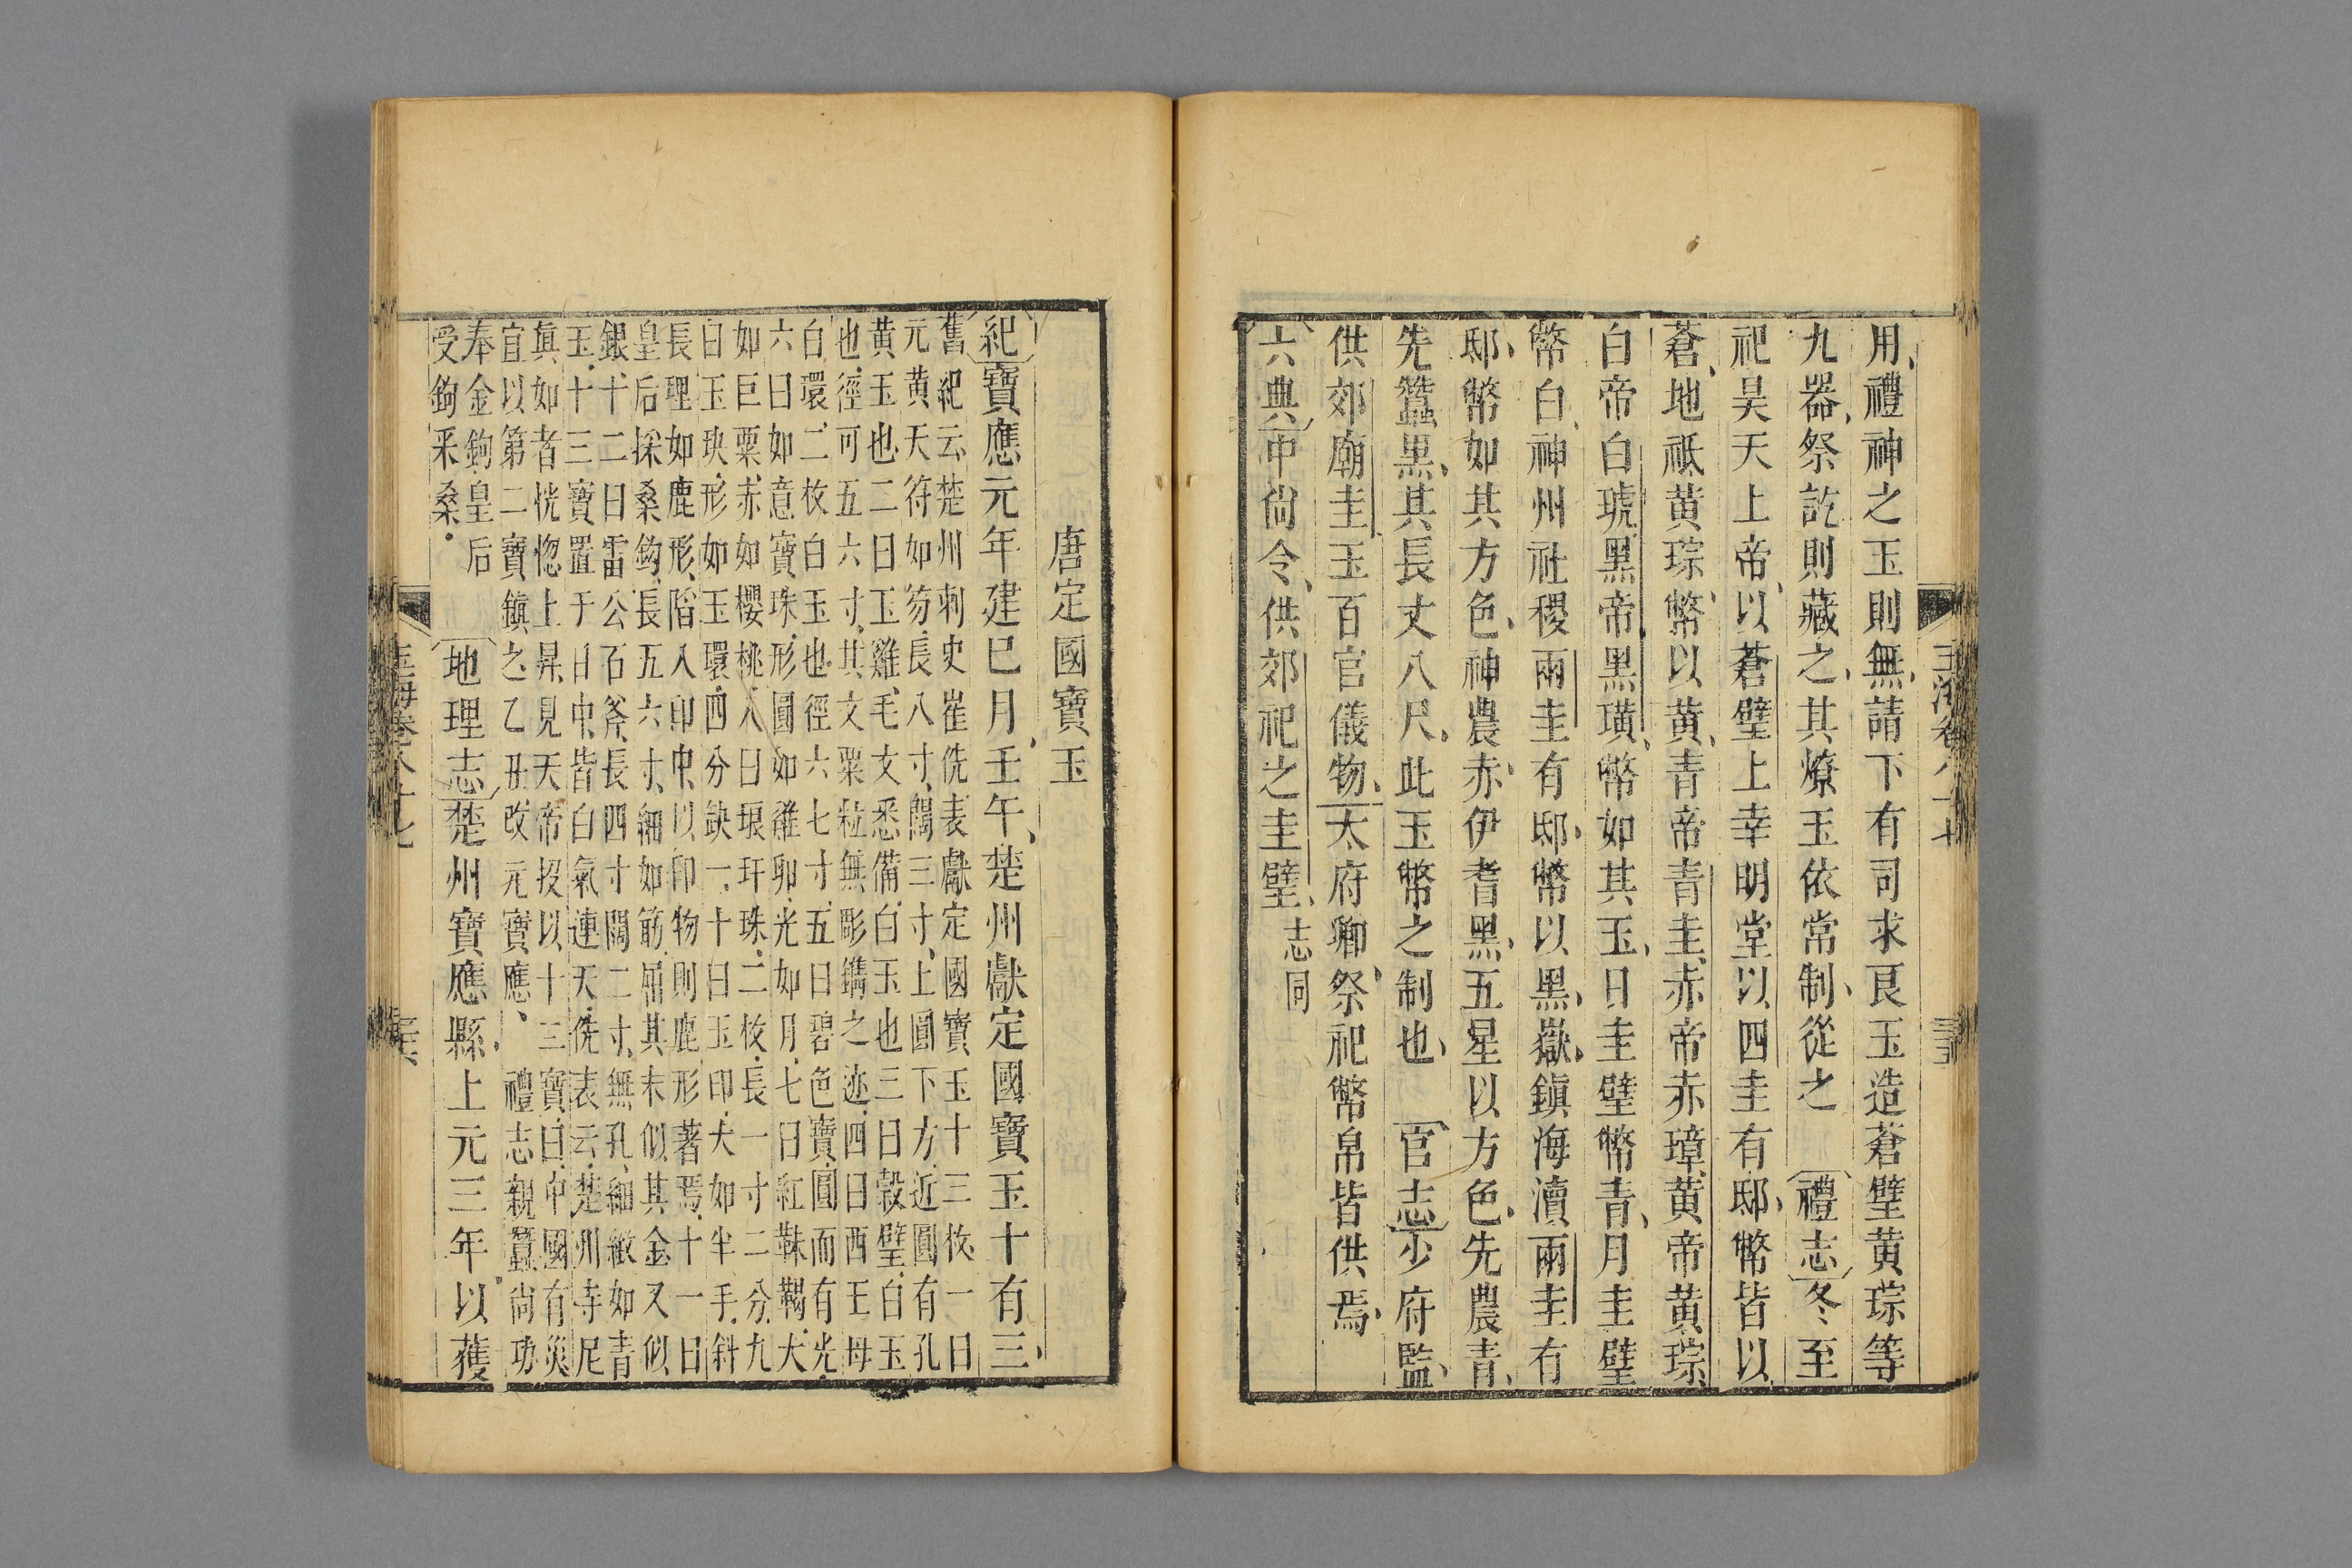 玉海卷八十七
三五
用禮神之玉則無請下有司求良玉造蒼璧黄琮等
九器祭訖則藏之其燎玉依常制從之 禮志冬至
祀昊天上帝以蒼璧上幸明堂以四圭有邸幣皆以
蒼地祇黄琮幣以黄青帝青圭赤帝赤璋黄帝黄琮
白帝白琥黑帝黑璜幣如其玉日圭璧幣青月圭璧
幣白神州社稷兩圭有邸幣以黑嶽鎮海瀆兩圭有
邸幣如其方色神農赤伊耆黑五星以方色先農青
先蠶黑其長丈八尺此玉幣之制也 官志少府監
供郊廟圭玉百官儀物太府卿祭祀幣帛皆供焉
六典中尚令供郊祀之圭璧志同
唐定國寶玉
紀寶應元年建巳月壬午楚州獻定國寶玉十有三
舊紀云楚州刺史崔侁表獻定國寶玉十三枚一曰
元黄天符如笏長八寸闊三寸上圓下方近圓有孔
黄玉也二曰玉雞毛文悉備白玉也三曰穀璧白玉
也徑可五六寸其文粟粒無彫鐫之迹四曰西王母
白環二枚白玉也徑六七寸五曰碧色寶圓而有光
六曰如意寶珠形圓如雞卵光如月七曰紅靺鞨大
如巨粟赤如櫻桃八曰琅玕珠二枚長一寸二分九
曰玉玦形如玉環四分缺一十曰玉印大如半手斜
長理如鹿形䧟入印中以印物則鹿形著焉十一曰
皇后採桑鉤長五六寸細如筯屈其末似其金又似
銀十二曰雷公石斧長四寸闊二寸無孔細緻如青
玉十三寶置于日中皆白氣連天侁表云楚州寺尼
真如者恍惚上昇見天帝授以十三寶曰中國有災
宜以第二寶鎮之乙丑改元寶應、 禮志親蠶尚功
奉金鉤皇后
受鉤采桑
地理志楚州寶應縣上元三年以獲
玉海卷八十七
三六